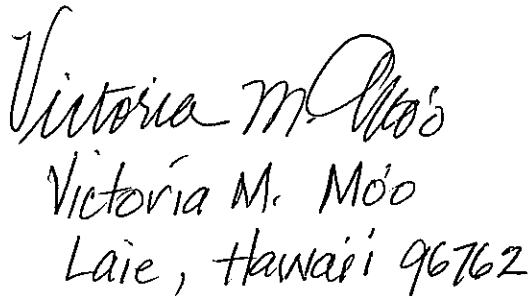 Victoria M. Moʻo
Victoria M. Moʻo
Laie, Hawaiʻi 96762